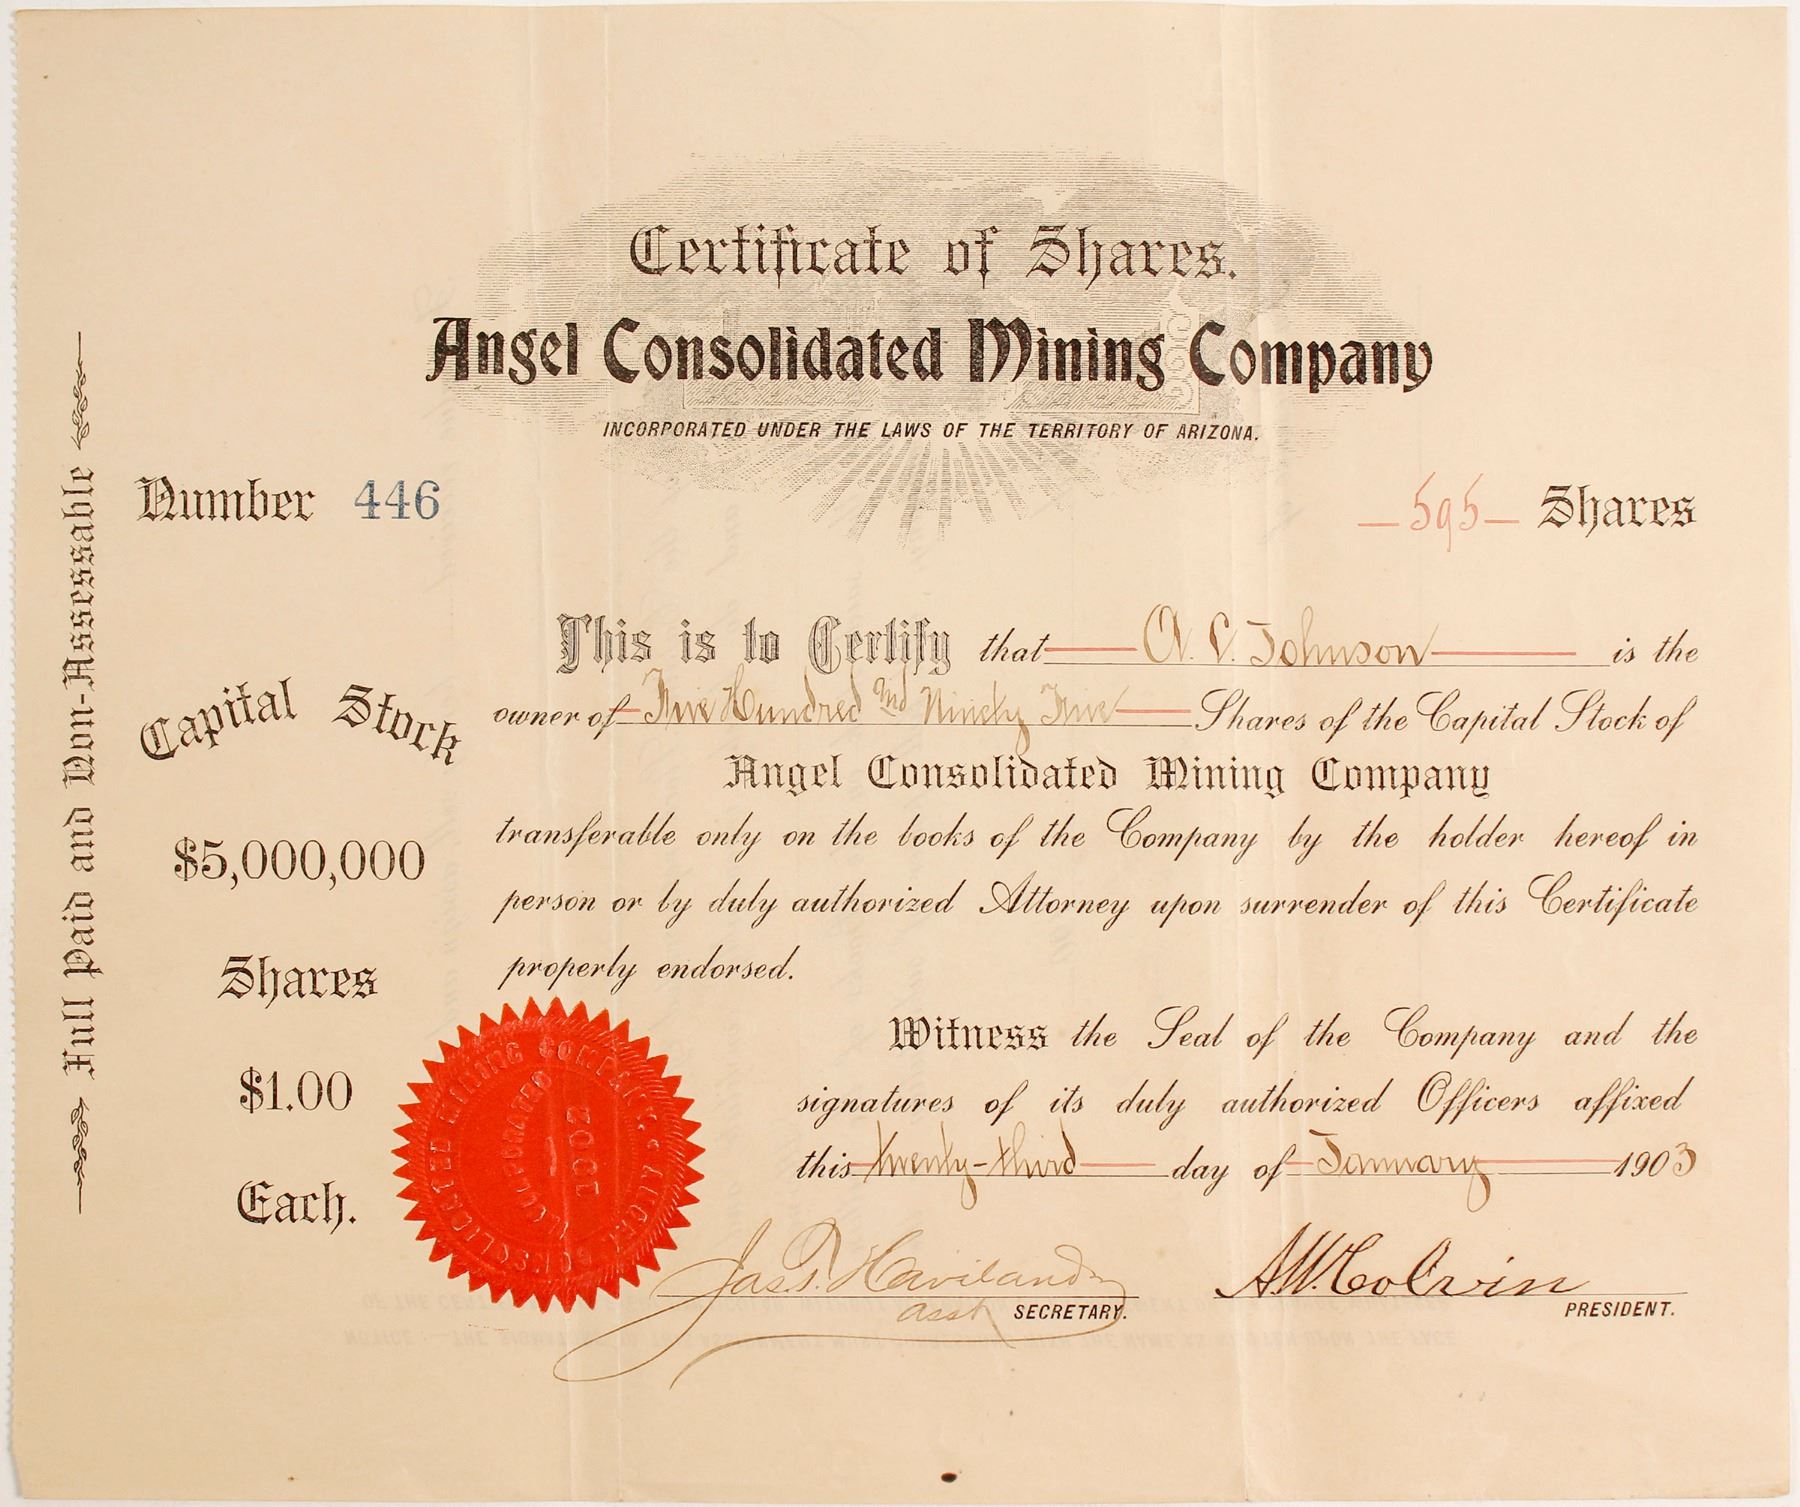 Certificate of Shares.
Angel Consolidated Mining Company
INCORPORATED UNDER THE LAWS OF THE TERRITORY OF ARIZONA.
Number 446
— 595 — Shares
Full Paid and Non-Assessable
Capital Stock
$5,000,000
Shares
$1.00
Each.
This is to Certify that A. L. Johnson is the
owner of Five Hundred and Ninety Five Shares of the Capital Stock of
Angel Consolidated Mining Company
transferable only on the books of the Company by the holder hereof in
person or by duly authorized Attorney upon surrender of this Certificate
properly endorsed.
Witness the Seal of the Company and the
signatures of its duly authorized Officers affixed
this twenty-third day of January 1903
Jas. T. Haviland
asst SECRETARY.
A.W. Colvin
PRESIDENT.
ANGEL CONSOLIDATED MINING COMPANY
INCORPORATED